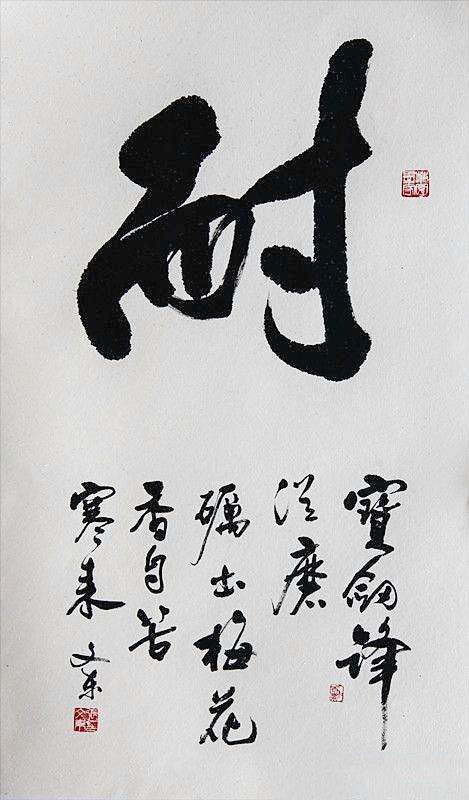 耐
寶劍鋒
從磨
礪出梅花
香自苦
寒来
文东